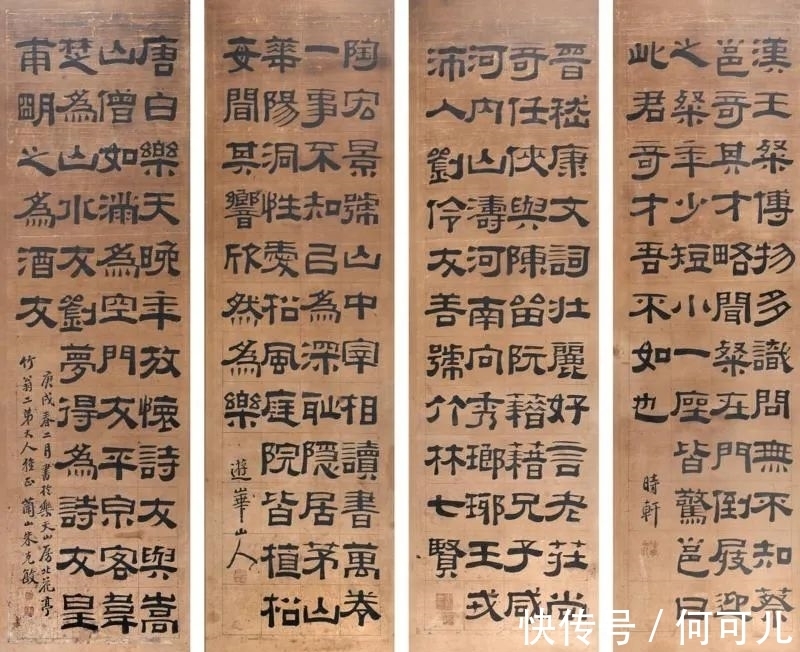 漢王粲博物多識問無不知蔡
邕奇其才略聞粲在門倒屐迎
之粲年少短小一座皆驚邕曰
此君奇才吾不如也
時軒
晉嵇康文詞壯麗好言老莊尚
奇任俠與陳留阮籍籍兄子咸
河內山濤河南向秀瑯琊王戎
沛人劉伶友善號竹林七賢
陶宏景號山中宰相讀書萬卷
一事不知己為深恥隱居茅山
華陽洞性愛松風庭院皆植松
每聞其響欣然為樂
遊華山人
唐白樂天晚年放懷詩友與嵩
山僧如滿為空門友平泉客韋
楚為山水友劉夢得為詩友皇
甫朙之為酒友
庚戌春二月書於樂天山房北花亭
竹翁二弟大人雅正 蘭山朱克敏
快传号 / 何可儿